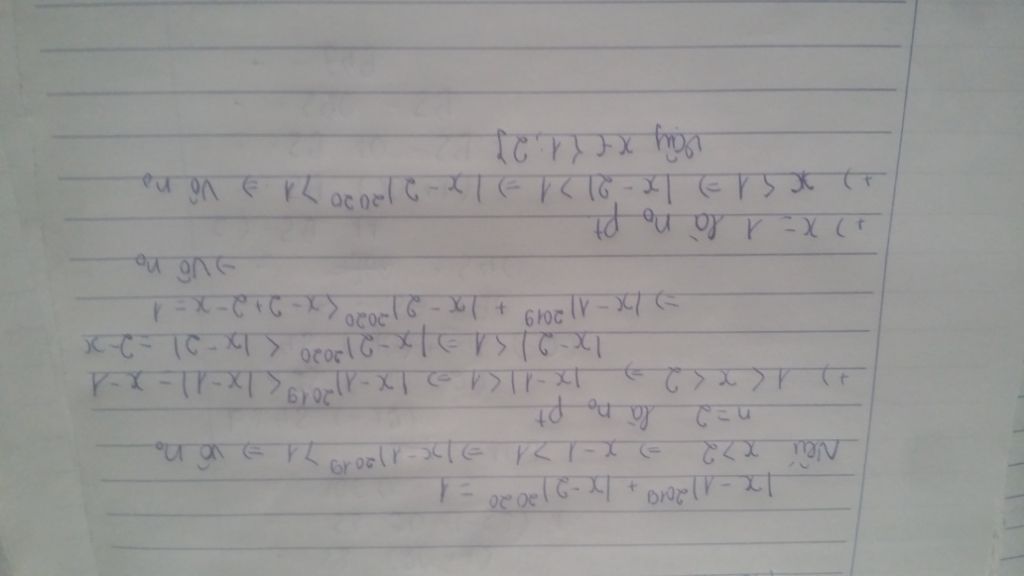 |x-1|²⁰¹⁹ + |x-2|²⁰²⁰ = 1
Nếu x>2 ⇒ x-1>1 ⇒ |x-1|²⁰¹⁹ >1 ⇒ Vô n₀
n=2 là n₀ pt
+) 1<x<2 ⇒ |x-1|<1 ⇒ |x-1|²⁰¹⁹ < |x-1| = x-1
|x-2|<1 ⇒ |x-2|²⁰²⁰ < |x-2| = 2-x
⇒ |x-1|²⁰¹⁹ + |x-2|²⁰²⁰ < x-2+2-x = 1
⇒ Vô n₀
+) x=1 là n₀ pt
+) x<1 ⇒ |x-2|>1 ⇒ |x-2|²⁰²⁰ >1 ⇒ Vô n₀
Vậy x ∈ {1;2}